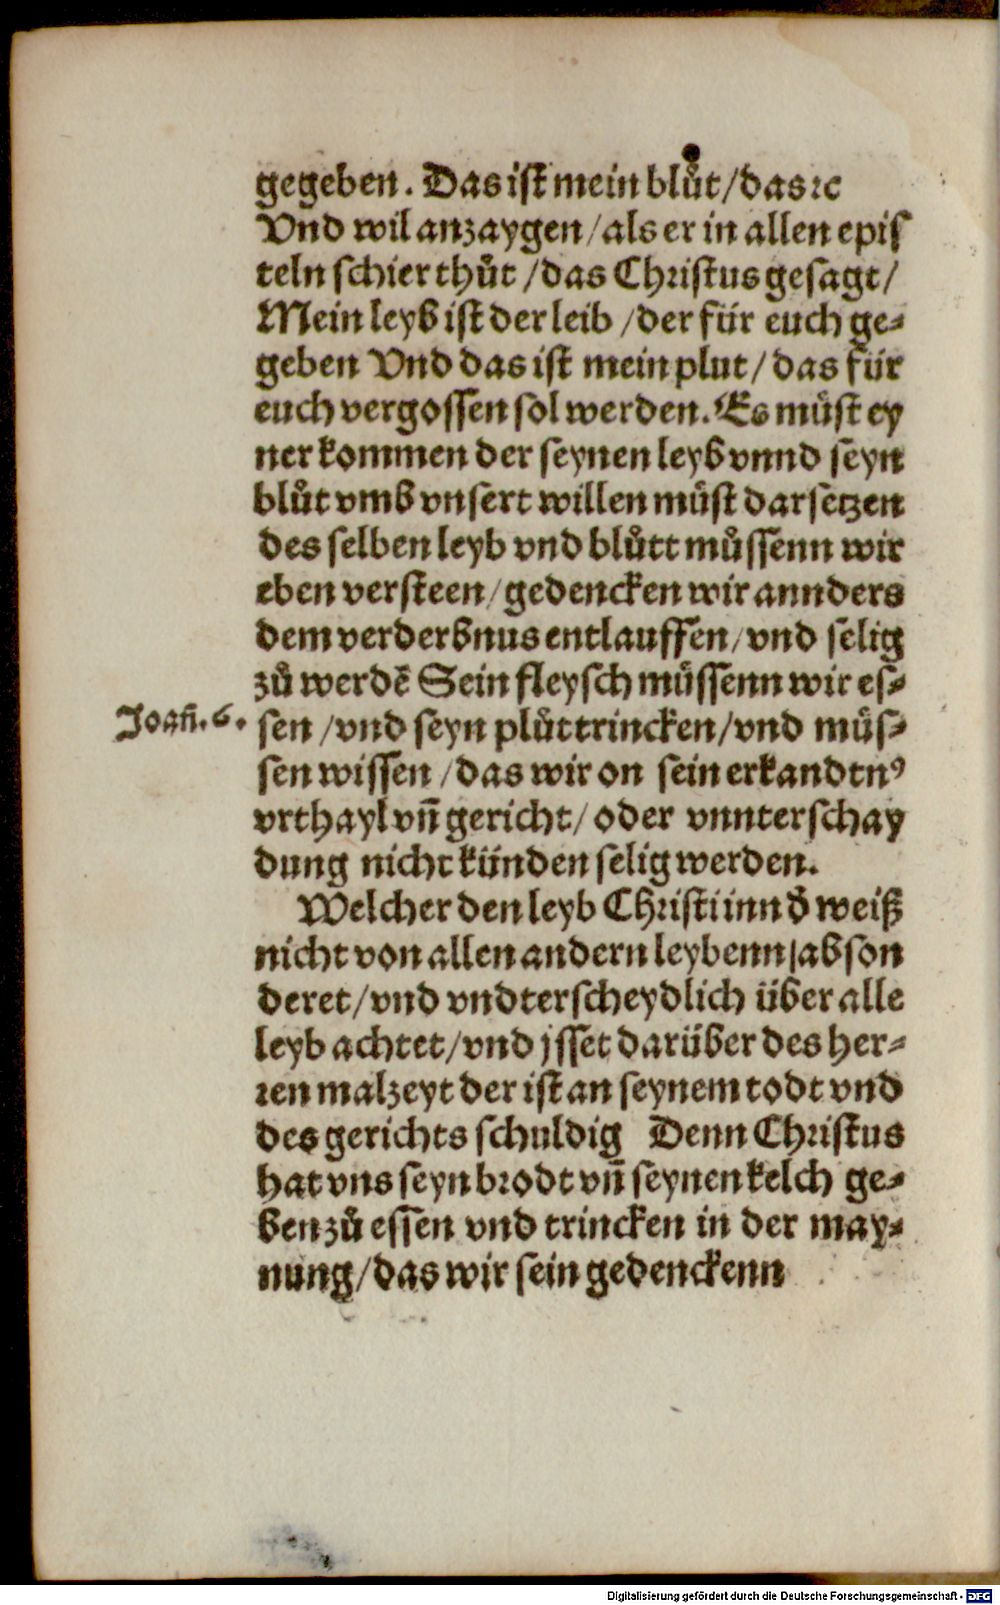 gegeben. Das ist mein blůt/das ꝛc
Vnd wil anzaygen/als er in allen epis
teln schier thůt/das Christus gesagt/
Mein leyb ist der leib/der für euch ge⸗
geben Vnd das ist mein plut/das für
euch vergossen sol werden. Es můst ey
ner kommen der seynen leyb vnnd seyn
blůt vmb vnsert willen můst darsetzen
des selben leyb vnd blůtt můssenn wir
eben versteen/gedencken wir annders
dem verderbnus entlauffen/vnd selig
zů werdē Sein fleysch můssenn wir es⸗
Joañ. 6.
sen/vnd seyn plůt trincken/vnd můs⸗
sen wissen/das wir on sein erkandtnꝰ
vrthayl vn̄ gericht/oder vnnterschay
dung nicht künden selig werden.
Welcher den leyb Christi inn d̕ weiß
nicht von allen andern leybenn/abson
deret/vnd vndterscheydlich über alle
leyb achtet/vnd jsset darüber des her⸗
ren malzeyt der ist an seynem todt vnd
des gerichts schuldig Denn Christus
hat vns seyn brodt vn̄ seynen kelch ge⸗
ben zů essen vnd trincken in der may⸗
nung/das wir sein gedenckenn
Digitalisierung gefördert durch die Deutsche Forschungsgemeinschaft - DFG